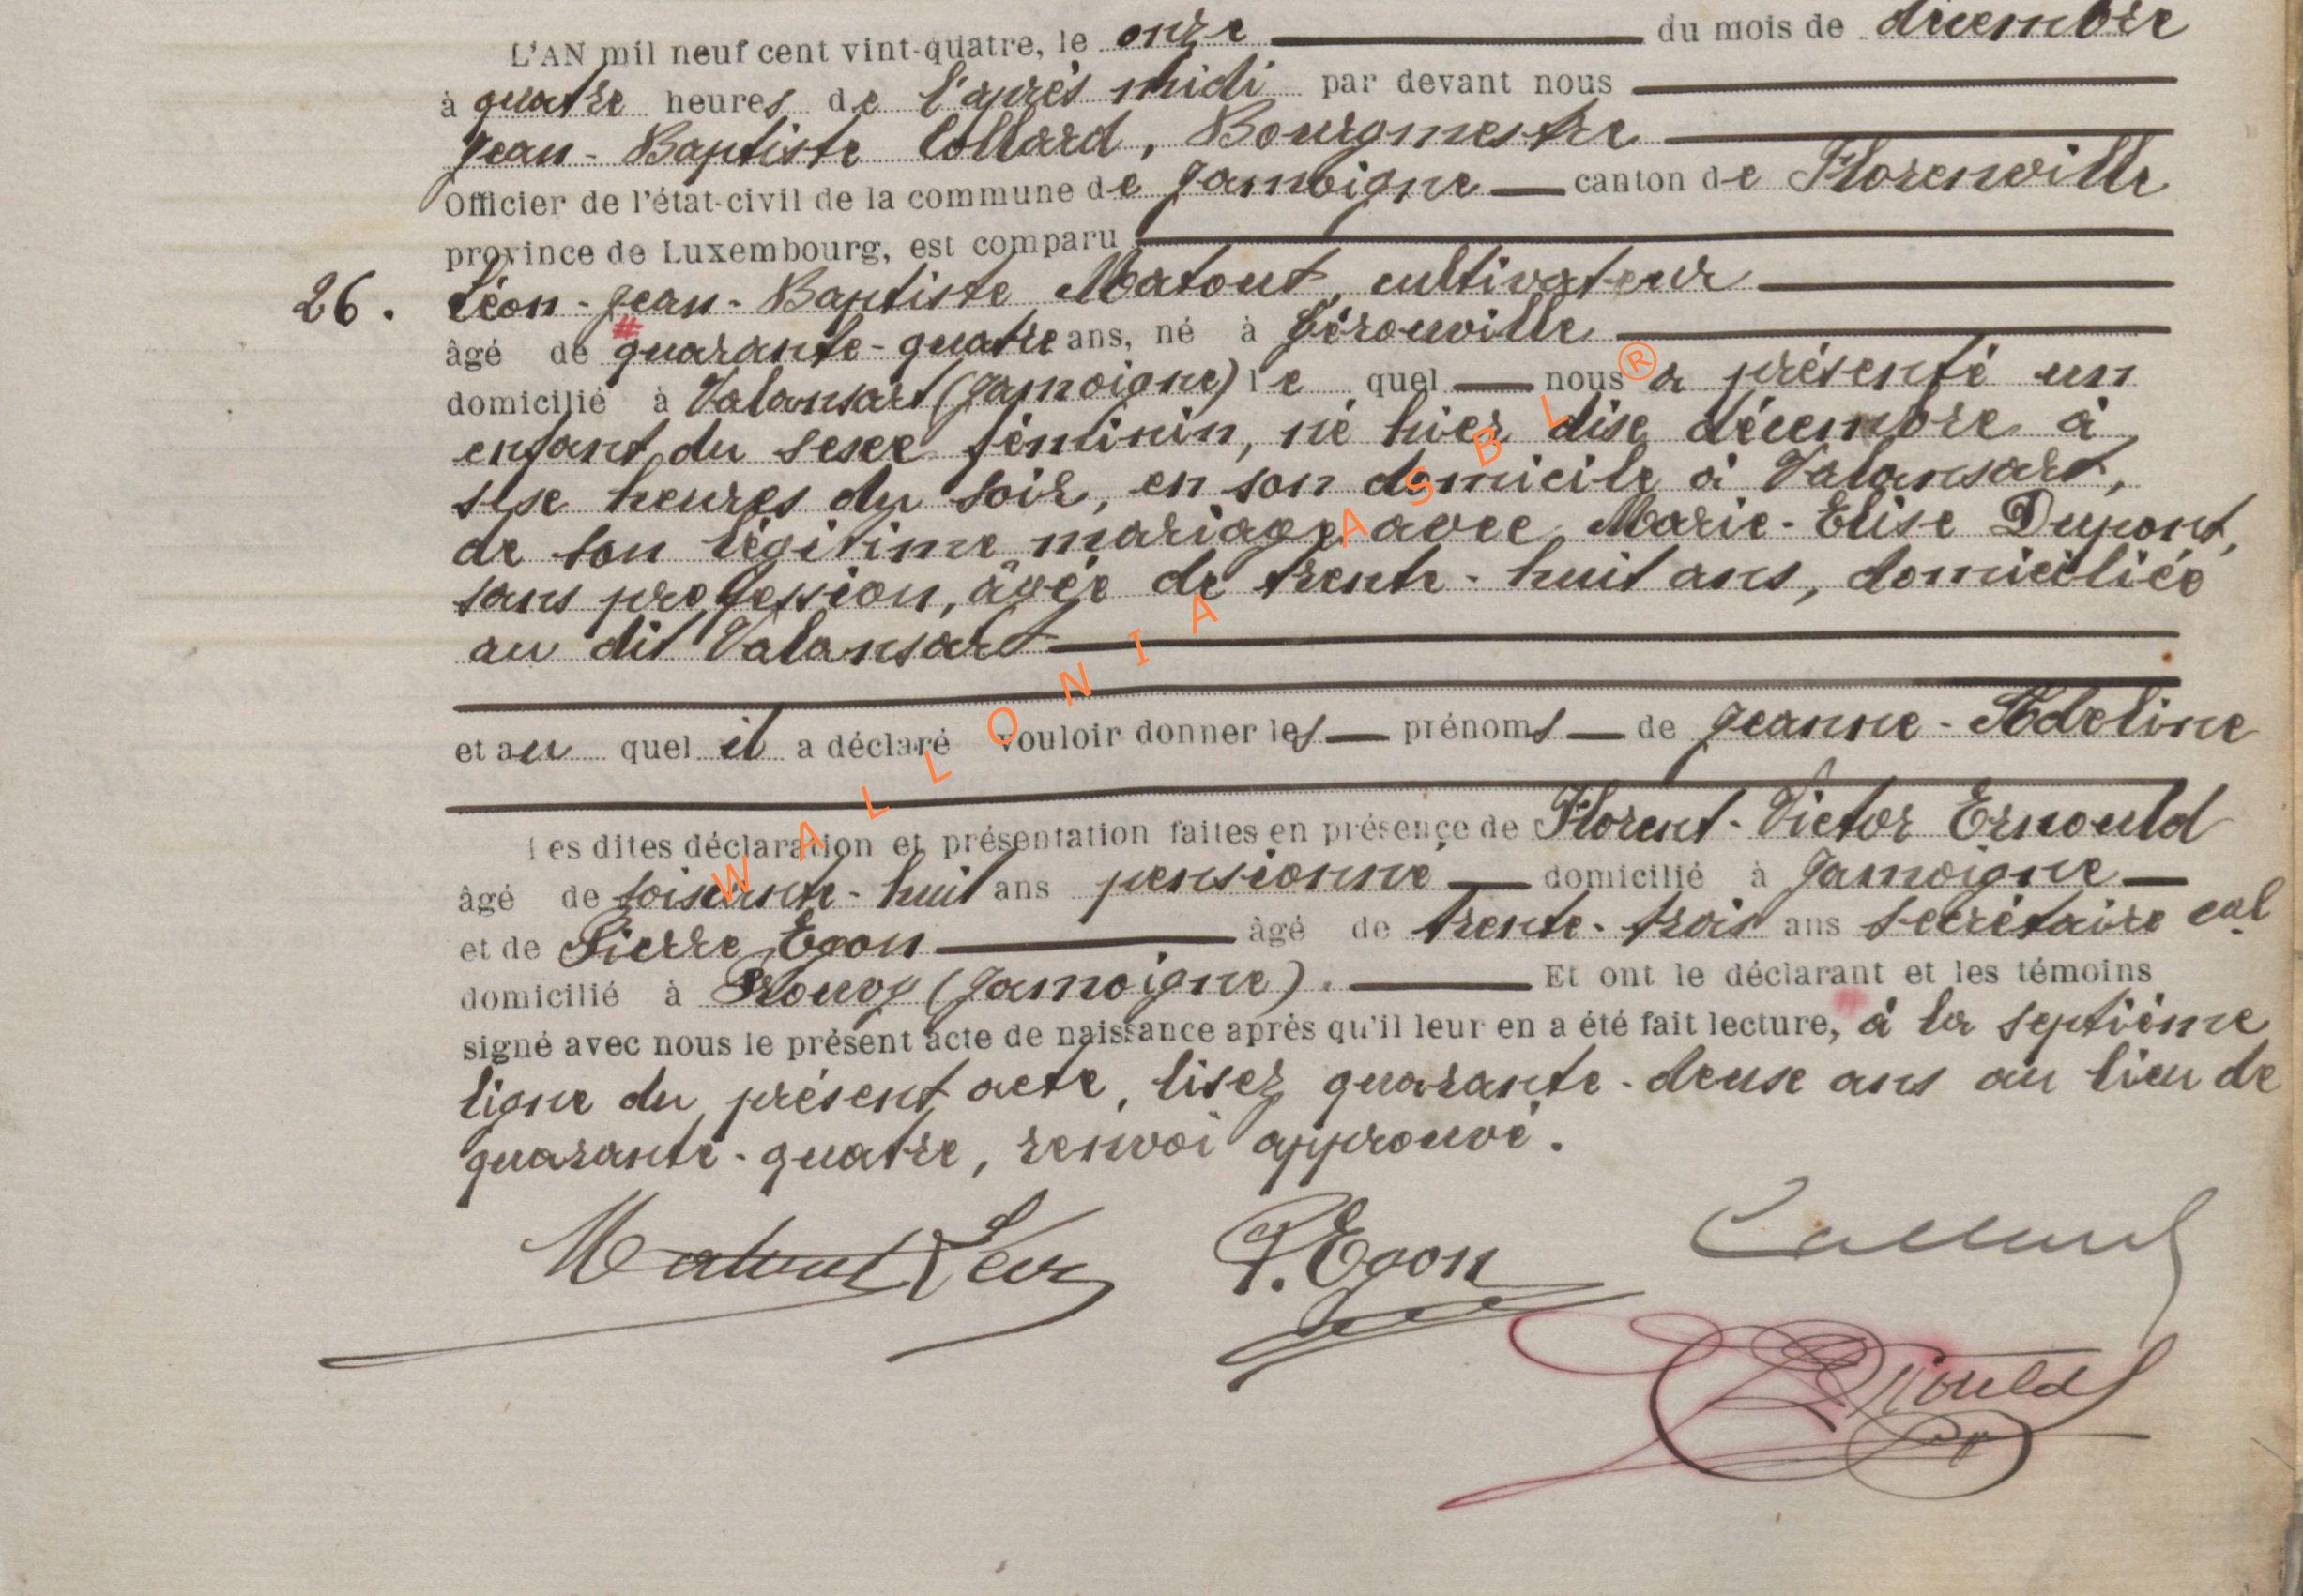 L'AN mil neuf cent vint-quatre, le onze du mois de décembre
à quatre heures de l'après midi par devant nous
Jean-Baptiste Collard, Bourgmestre
Officier de l'état-civil de la commune de Jamoigne canton de Florenville
province de Luxembourg, est comparu
26. Léon-Jean-Baptiste Matout, cultivateur
âgé de quarante-quatre ans, né à Gérouville
domicilié à Valansart (Jamoigne) le quel nous a présenté un
enfant du sexe féminin, né hier dix décembre à
six heures du soir, en son domicile à Valansart,
de son légitime mariage avec Marie-Elise Dupont,
sans profession, âgée de trente-huit ans, domiciliée
au dit Valansart
et au quel il a déclaré vouloir donner les prénoms de Jeanne-Adeline
Les dites déclaration et présentation faites en présence de Florent-Victor Ernould
âgé de soixante-huit ans pensionné domicilié à Jamoigne
et de Pierre Egon âgé de trente-trois ans secrétaire cal
domicilié à Prouvy (Jamoigne). Et ont le déclarant et les témoins
signé avec nous le présent acte de naissance après qu'il leur en a été fait lecture, à la septième
ligne du présent acte, lisez quarante-deux ans au lieu de
quarante-quatre, renvoi approuvé.
Matout Léon P. Egon Collard
Ernould
WALLONIA ASBL ®